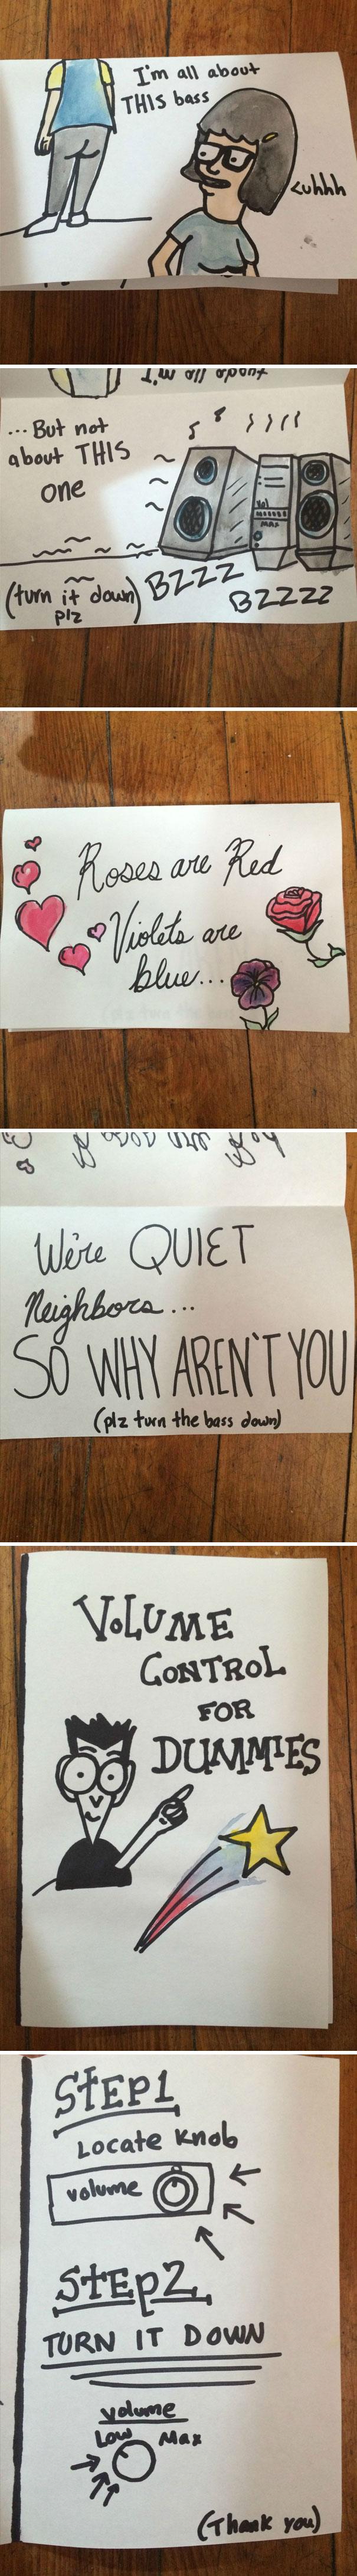 I'm all about
THIS bass
<uhhh
... But not
about THIS
one
Vol
MAX
(turn it down)
plz
BZZZ
BZZZZ
Roses are Red
Violets are
blue...
We're QUIET
Neighbors...
SO WHY AREN'T YOU
(plz turn the bass down)
VOLUME
CONTROL
FOR
DUMMIES
STEP1
Locate Knob
volume
Step2
TURN IT DOWN
volume
Low Max
(Thank you)